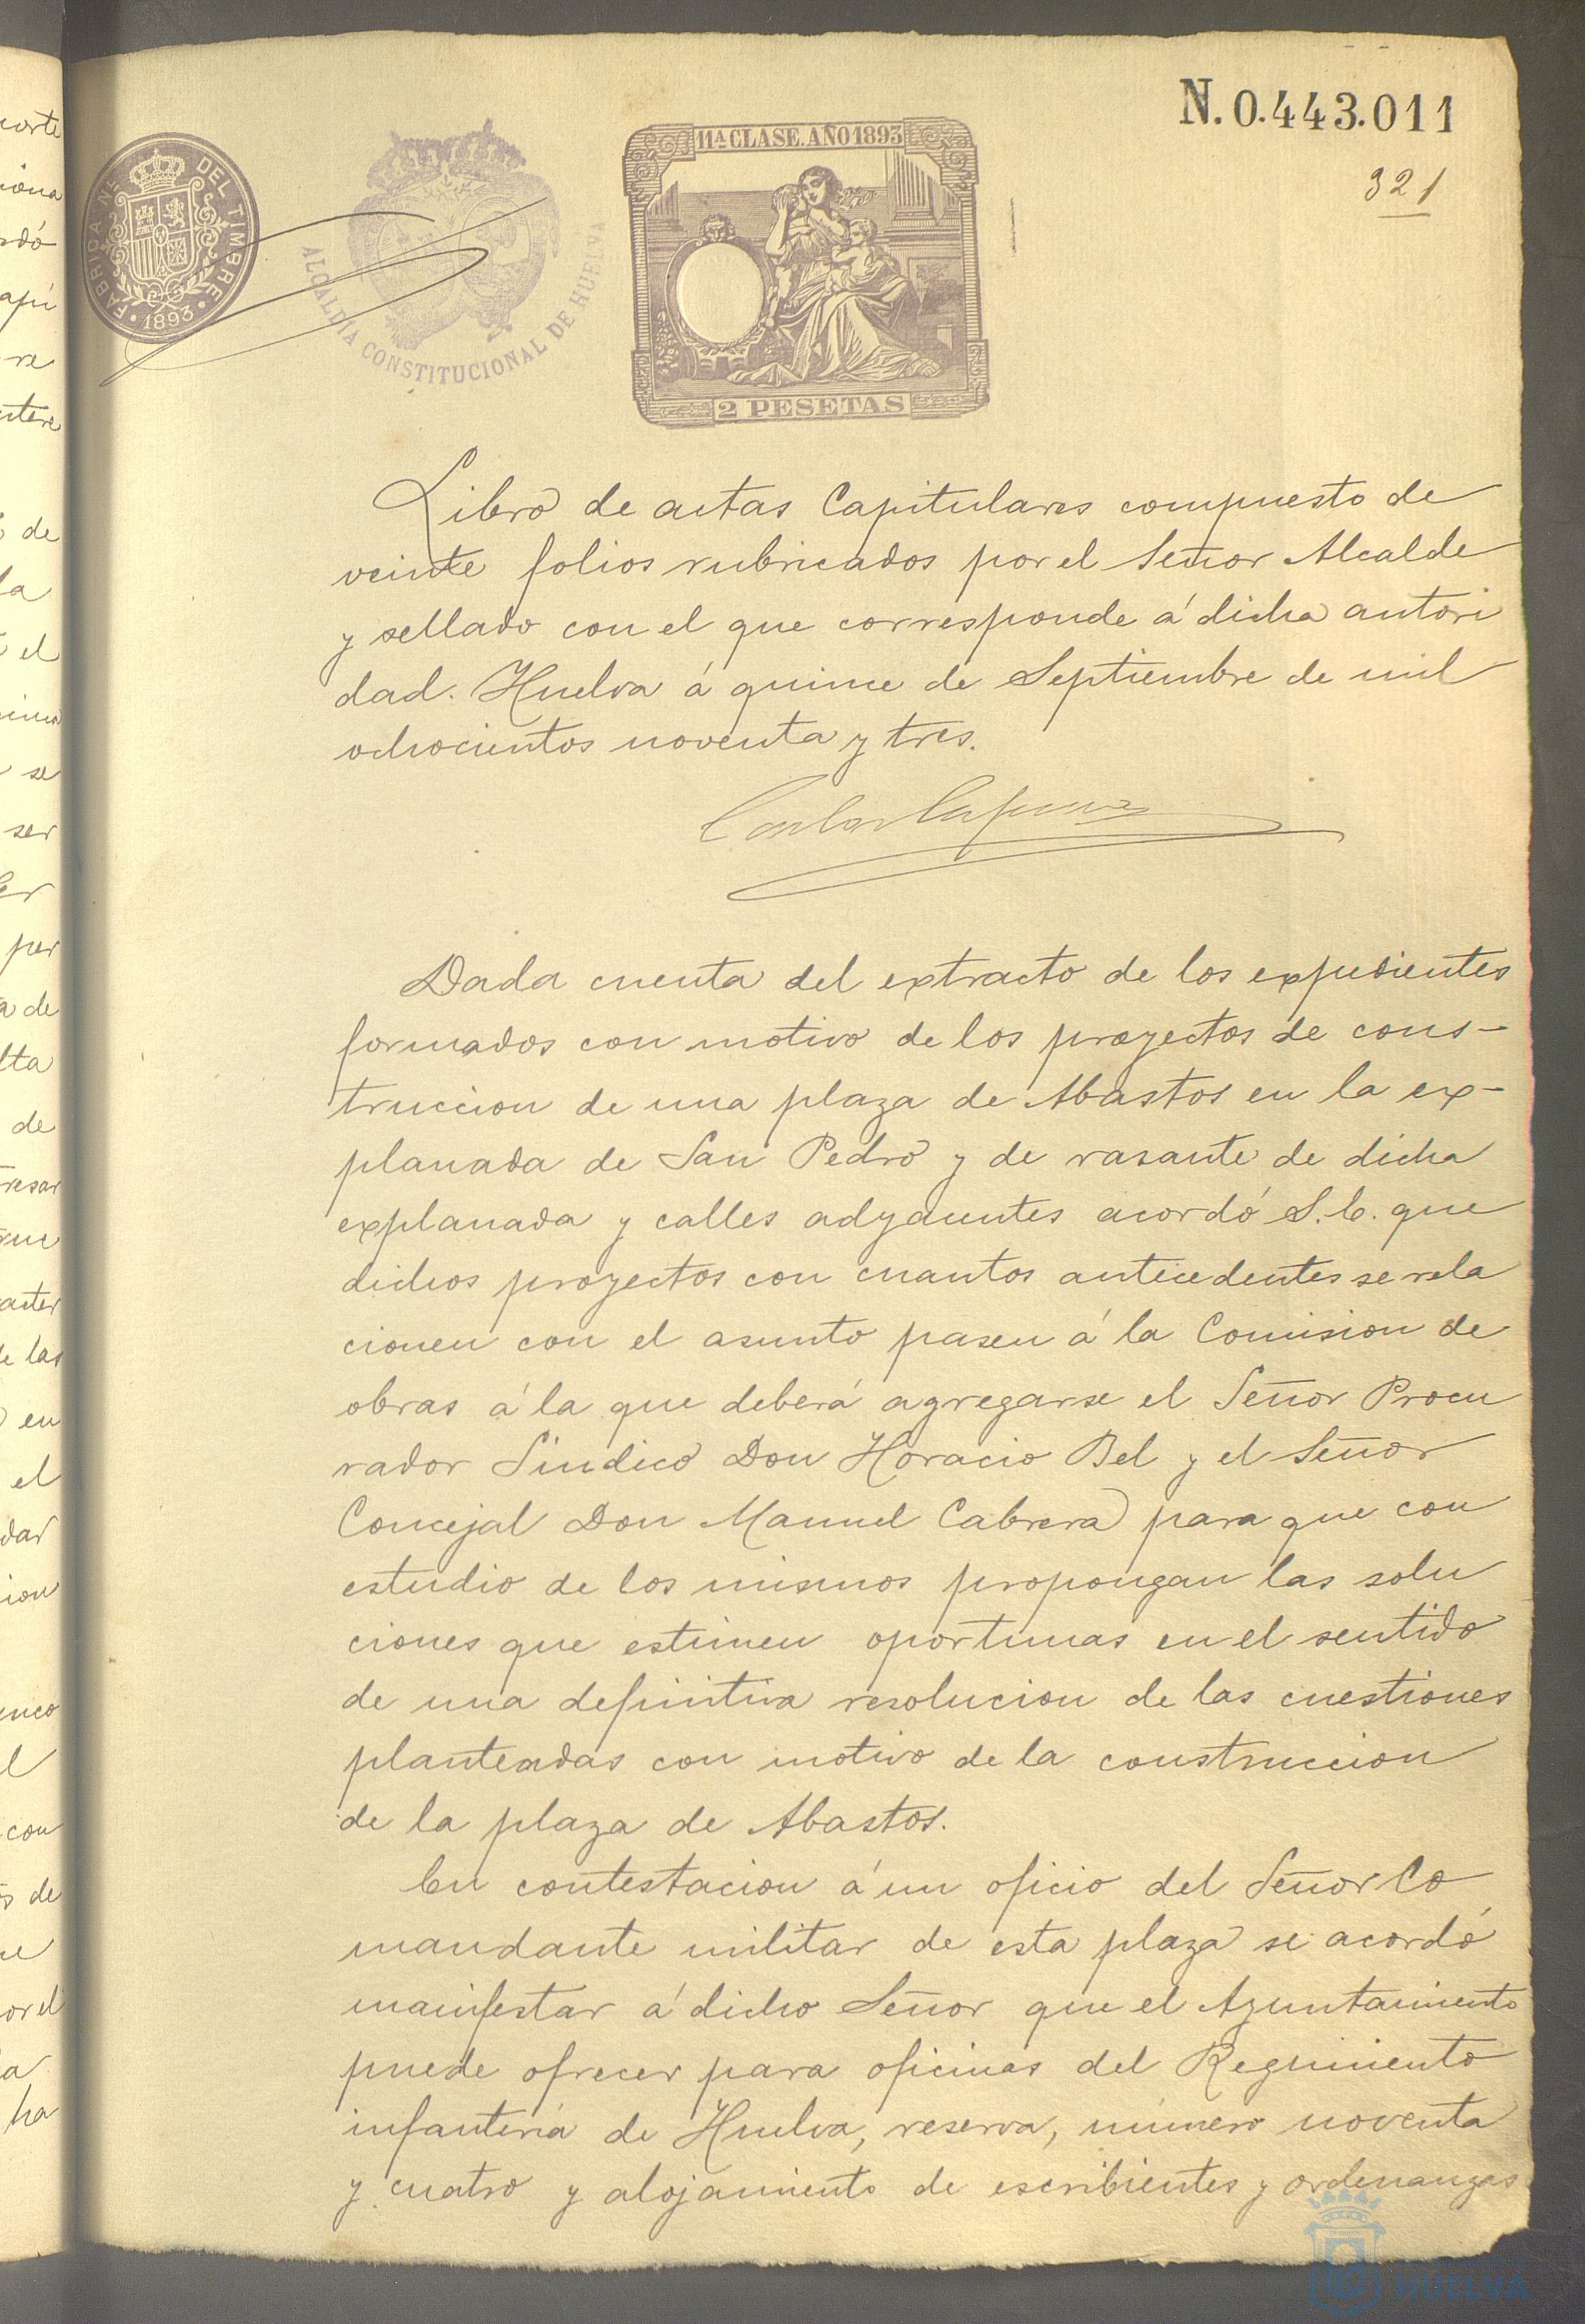 N.0.443.011
321
FABRICA NL. DEL TIMBRE
1893
ALCALDÍA CONSTITUCIONAL DE HUELVA
11ª CLASE. AÑO 1893
2 PESETAS
Libro de actas Capitulares compuesto de
veinte folios rubricados por el Señor Alcalde
y sellado con el que corresponde á dicha autori
dad. Huelva á quince de Septiembre de mil
ochocientos noventa y tres.
Dada cuenta del extracto de los expedientes
formados con motivo de los proyectos de cons-
truccion de una plaza de Abastos en la ex-
planada de San Pedro y de rasante de dicha
explanada y calles adyacentes acordó S.C. que
dichos proyectos con cuantos antecedentes se rela
cionen con el asunto pasen á la Comision de
obras á la que deberá agregarse el Señor Procu
rador Sindico Don Horacio Bel y el Señor
Concejal Don Manuel Cabrera para que con
estudio de los mismos propongan las solu
ciones que estimen oportunas en el sentido
de una definitiva resolucion de las cuestiones
planteadas con motivo de la construccion
de la plaza de Abastos.
En contestacion á un oficio del Señor Co
mandante militar de esta plaza se acordó
manifestar á dicho Señor que el Ayuntamiento
puede ofrecer para oficinas del Regimiento
infanteria de Huelva, reserva, número noventa
y cuatro y alojamiento de escribientes y ordenanzas
HUELVA